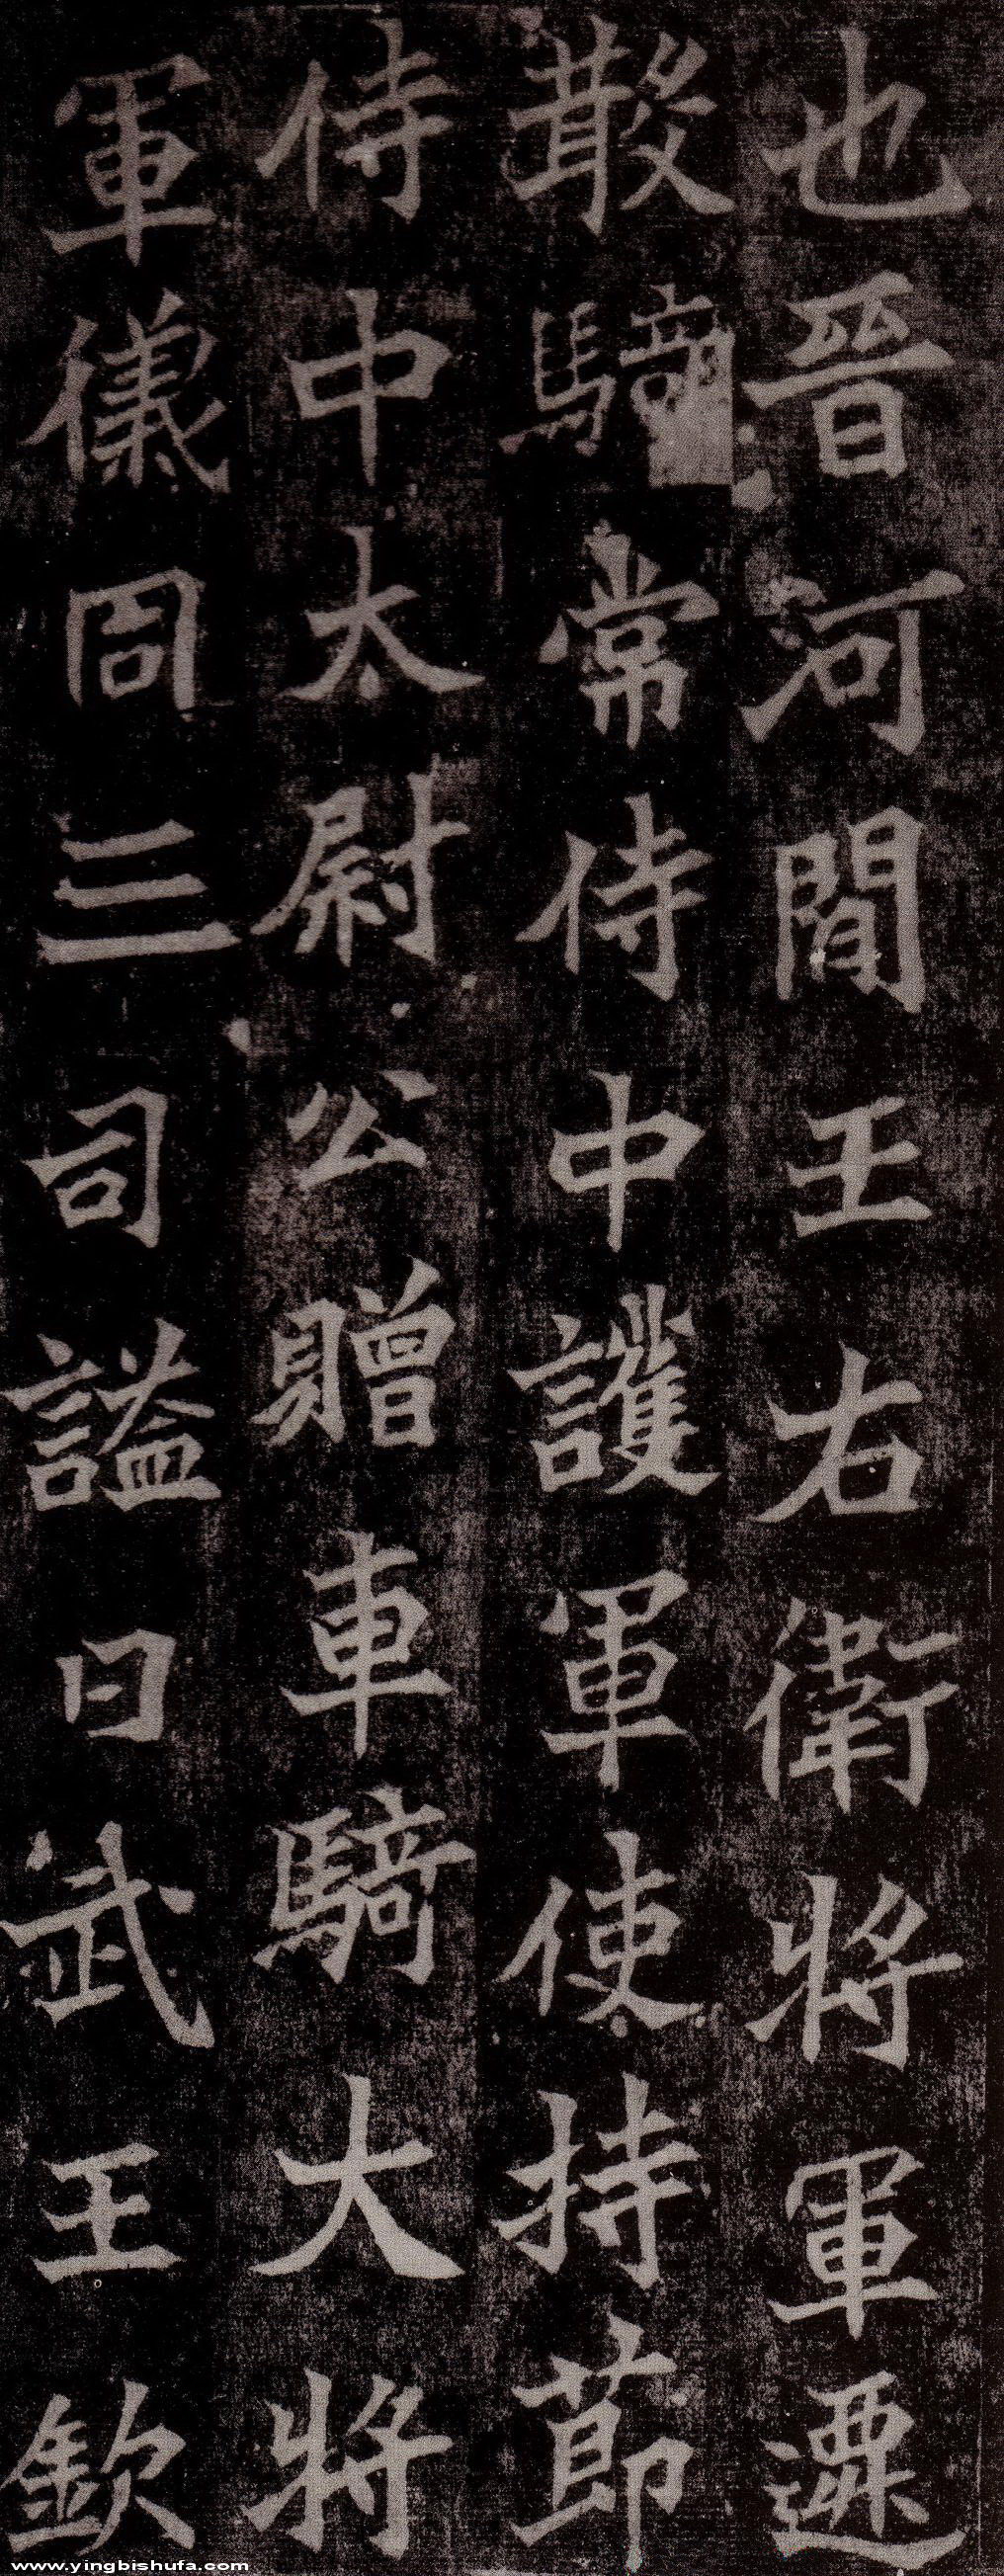 也晉河間王右衛將軍遷
散騎常侍中護軍使持節
侍中太尉公贈車騎大將
軍儀同三司謚曰武王欽
www.yingbishufa.com